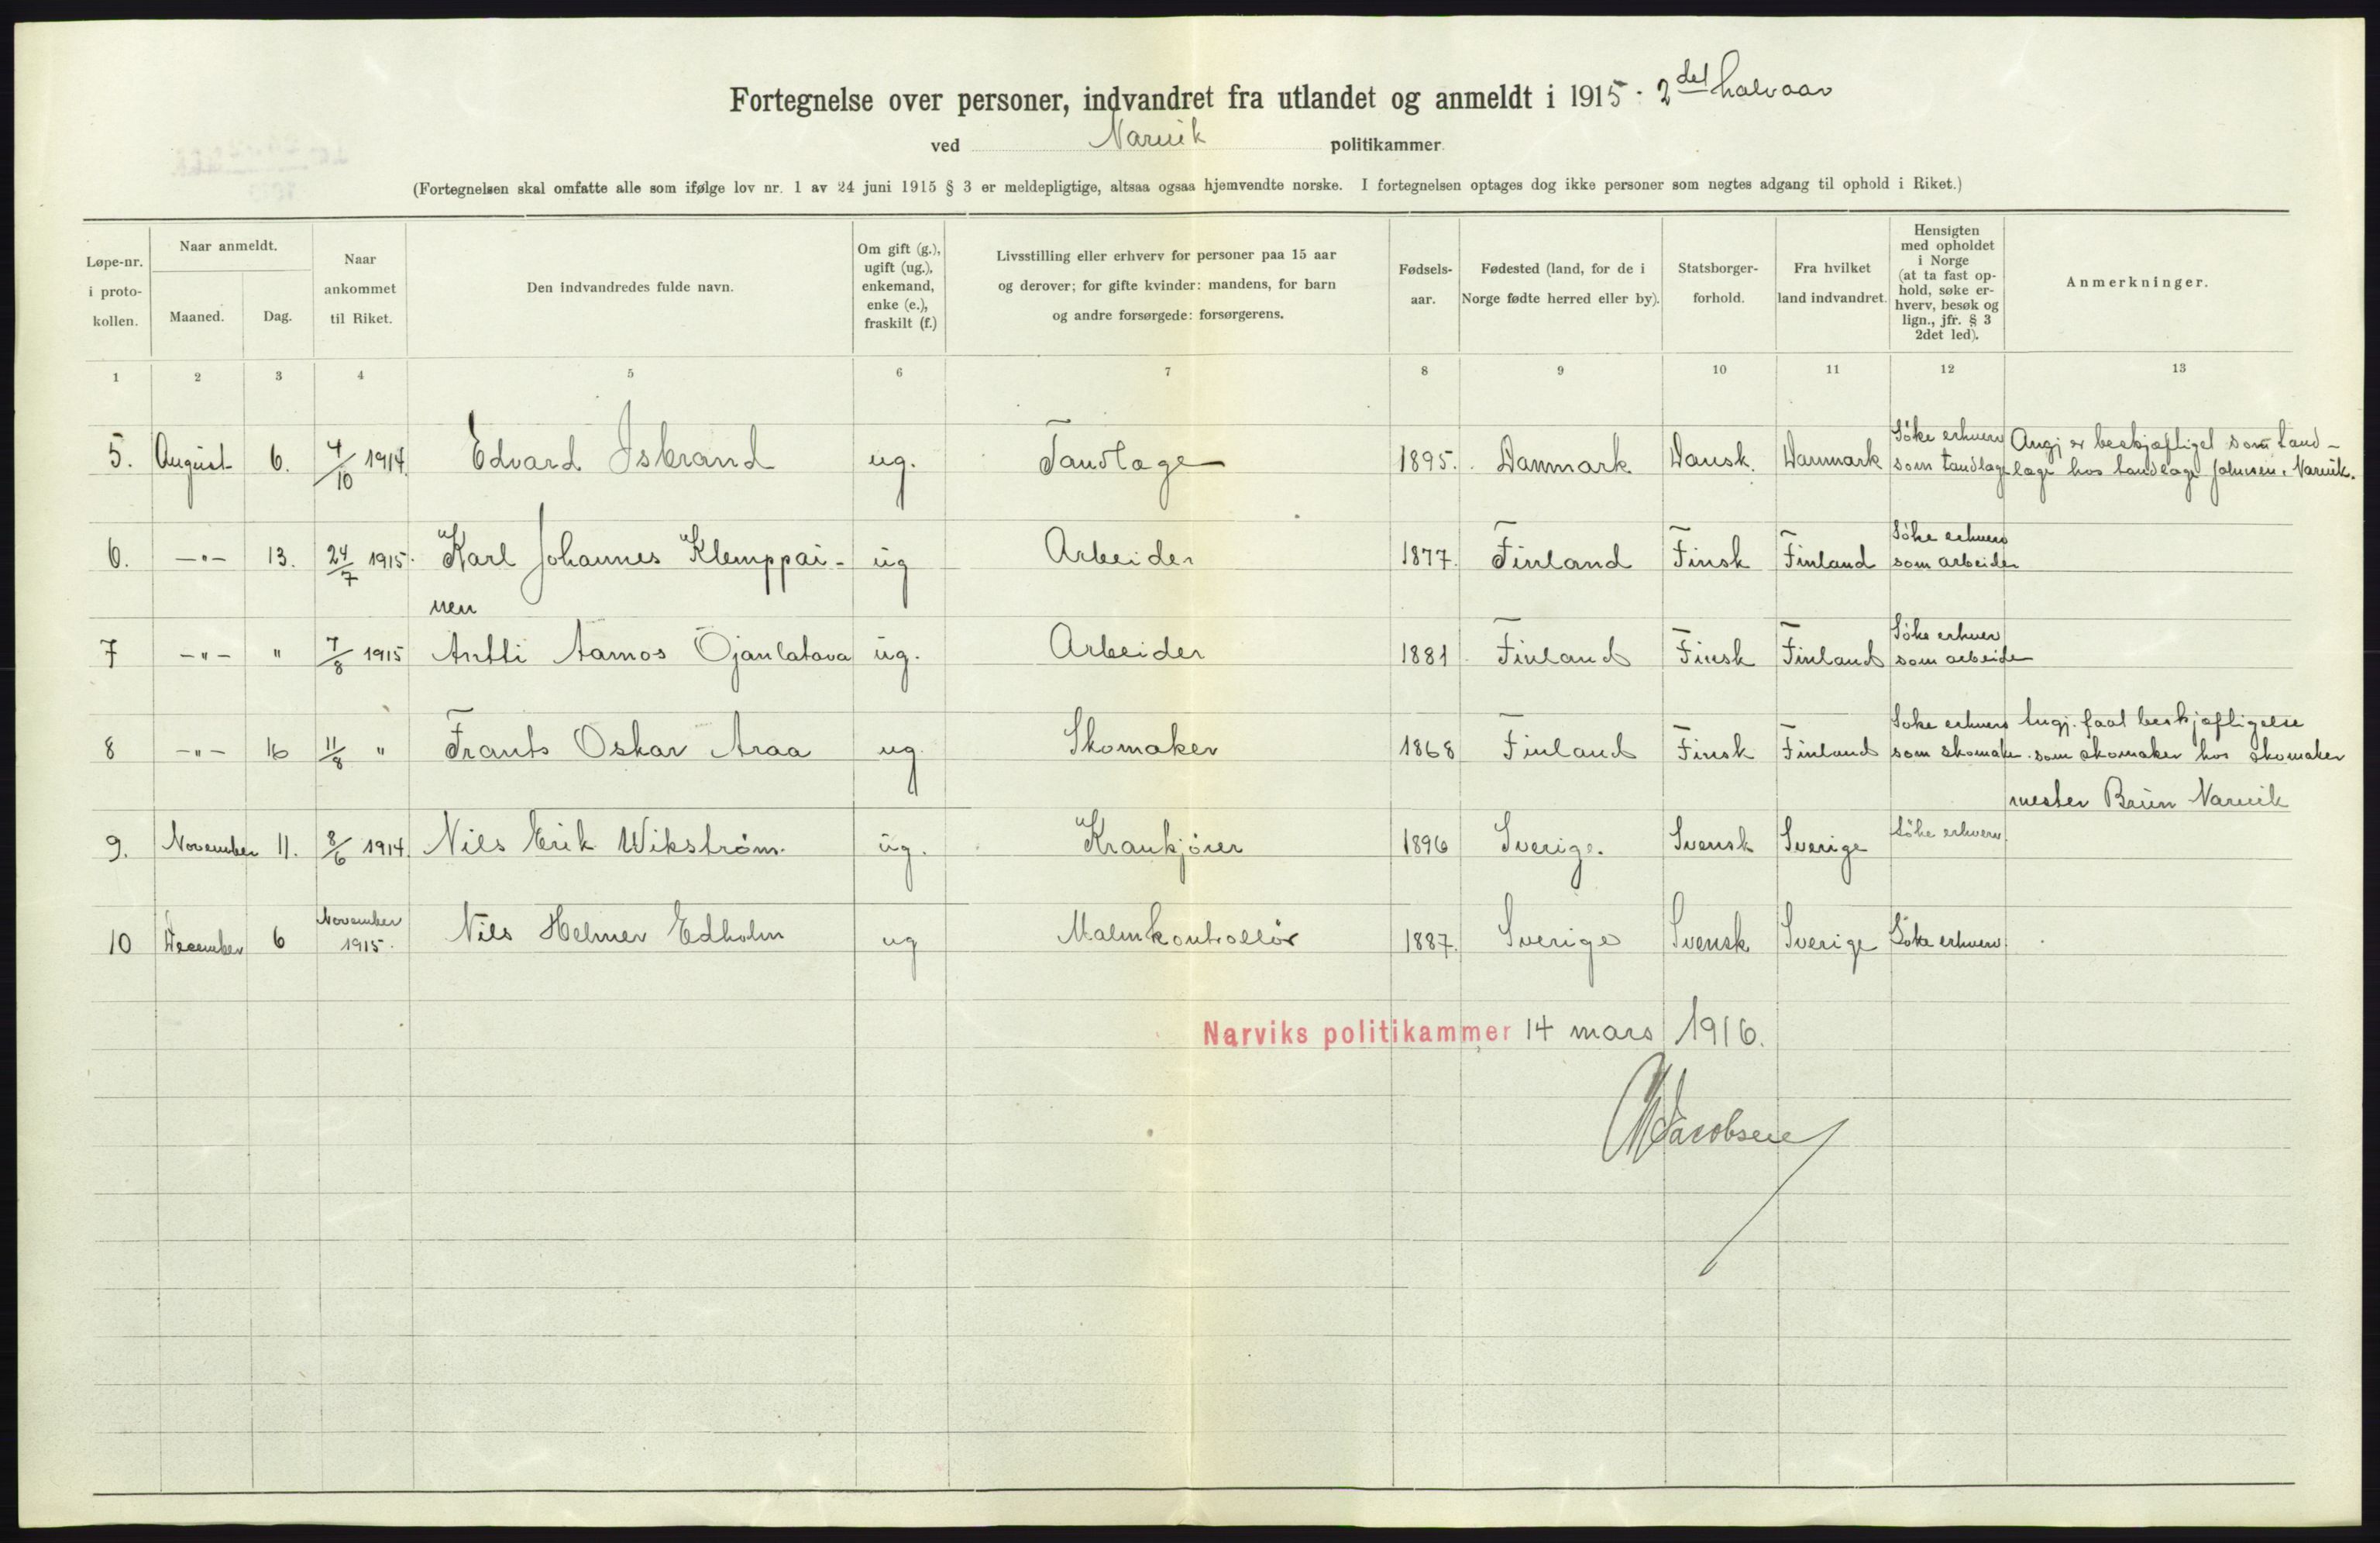 Fortegnelse over personer, indvandret fra utlandet og anmeldt i 1915. 2det halvaar
ved Narvik politikammer
(Fortegnelsen skal omfatte alle som ifølge lov nr. 1 av 24 juni 1915 § 3 er meldepligtige, altsaa ogsaa hjemvendte norske. I fortegnelsen optages dog ikke personer som negtes adgang til ophold i Riket.)
Løpe-nr. i proto-kollen.
Naar anmeldt.
Maaned. Dag.
Naar ankommet til Riket.
Den indvandredes fulde navn.
Om gift (g.), ugift (ug.), enkemand, enke (e.), fraskilt (f.)
Livsstilling eller erhverv for personer paa 15 aar
og derover; for gifte kvinder: mandens, for barn
og andre forsørgede: forsørgerens.
Fødsels-aar.
Fødested (land, for de i Norge fødte herred eller by).
Statsborger-forhold.
Fra hvilket land indvandret.
Hensigten med opholdet i Norge (at ta fast op-hold, søke er-hverv, besøk og lign., jfr. § 3 2det led).
Anmerkninger.
1 2 3 4 5 6 7 8 9 10 11 12 13
5. August 6. 4/10 1914. Edvard Isbrand ug. Tandlæge 1895. Danmark Dansk. Danmark Söke erhverv som tandlæge Angj er beskjæftiget som tand-læge hos tandlæge Johnsen, Narvik.
6. —"— 13. 24/7 1915. Karl Johannes Klemppai-nen ug Arbeider 1877. Finland Finsk Finland Söke erhverv som arbeider
7 —"— " 7/8 1915 Antti Aamos Ojanlatava ug. Arbeider 1881. Finland Finsk Finland Söke erhverv som arbeider
8 —"— 16 11/8 " Frants Oskar Araa ug. Skomaker 1868 Finland Finsk Finland Söke erhverv som skomaker. Angj. faat beskjæftigelse som skomaker hos skomaker mester Brün Narvik
9. November 11. 8/6 1914. Nils Erik Wikström. ug. Krankjörer 1896 Sverige. Svensk Sverige Söke erhverv
10 December 6 November 1915. Nils Helmer Edholm ug Malmkontrollör 1887. Sverige Svensk Sverige Söke erhverv
Narviks politikammer 14 mars 1916.
Jacobsen